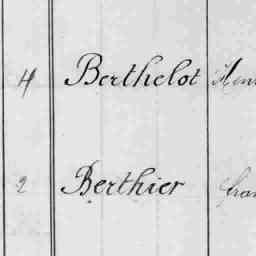 4 Berthelot
2 Berthier